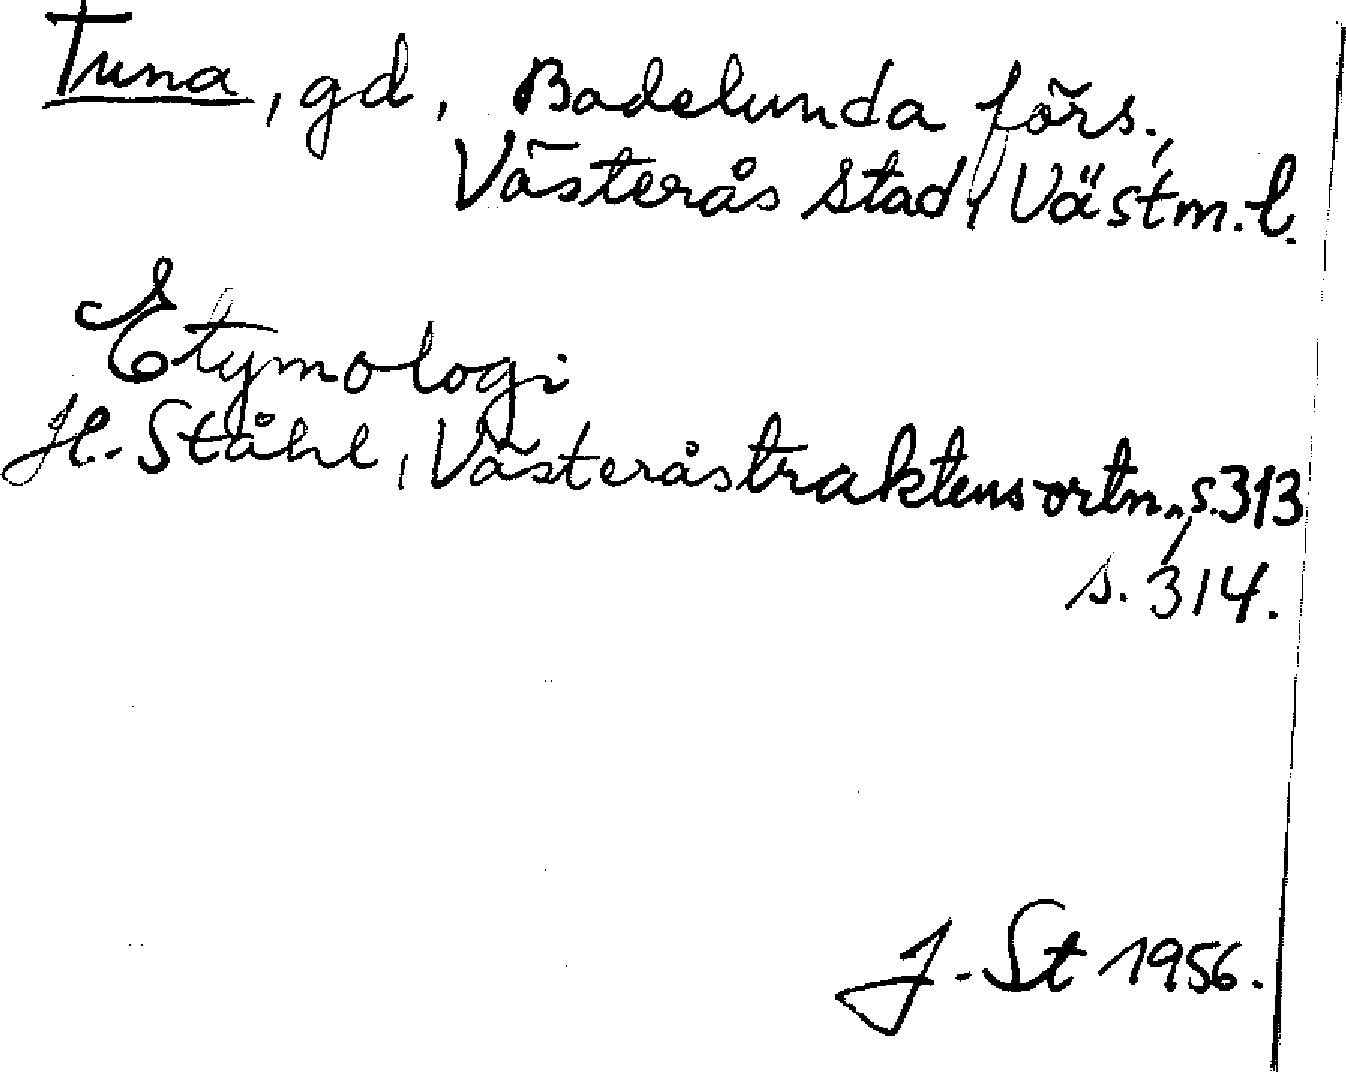 Tuna, gd, Badelunda förs.,
Västerås stad, Västm. l.
Etymologi
H. Ståhl, Västeråstraktens ortn., s. 313
s. 314.
J. St 1956.